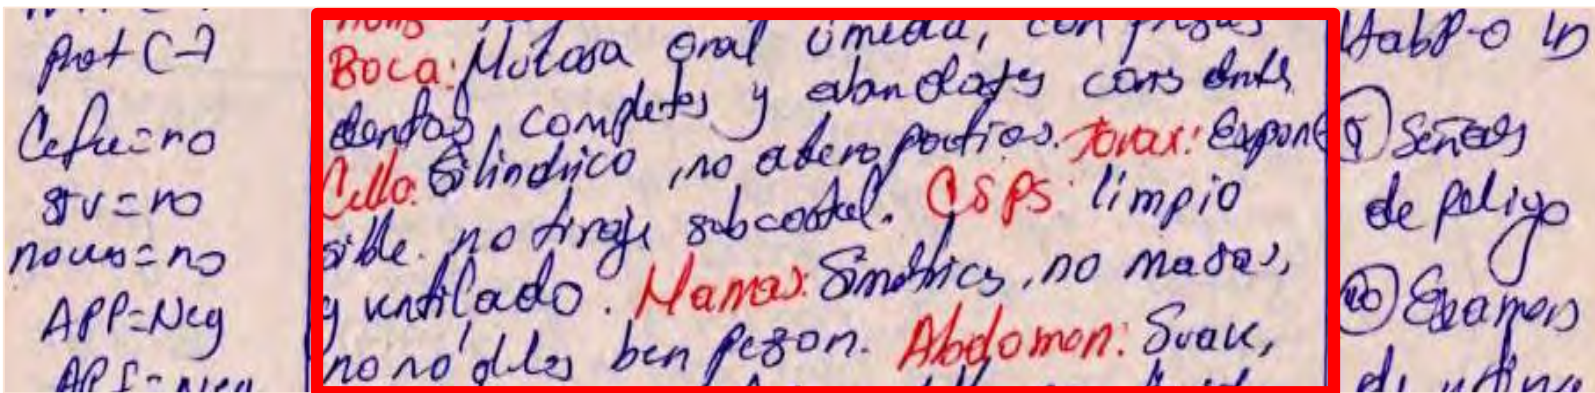 Prot (-)
Cefa=no
STV=no
nauss=no
APP=Neg
Boca: Mucosa oral úmeda, con piezas
dentas, completas y abundates cons dents
Cello: Cilindrico, no adenopatias. Torax: Expan
sible. no tiraje subcostal. CSPS: limpio
y ventilado. Mamas: Simetrics, no masas,
no nódulos ben pezon. Abdomen: Suave,
HabP-0 in
9) Señales
de peligo
10) Examens
de